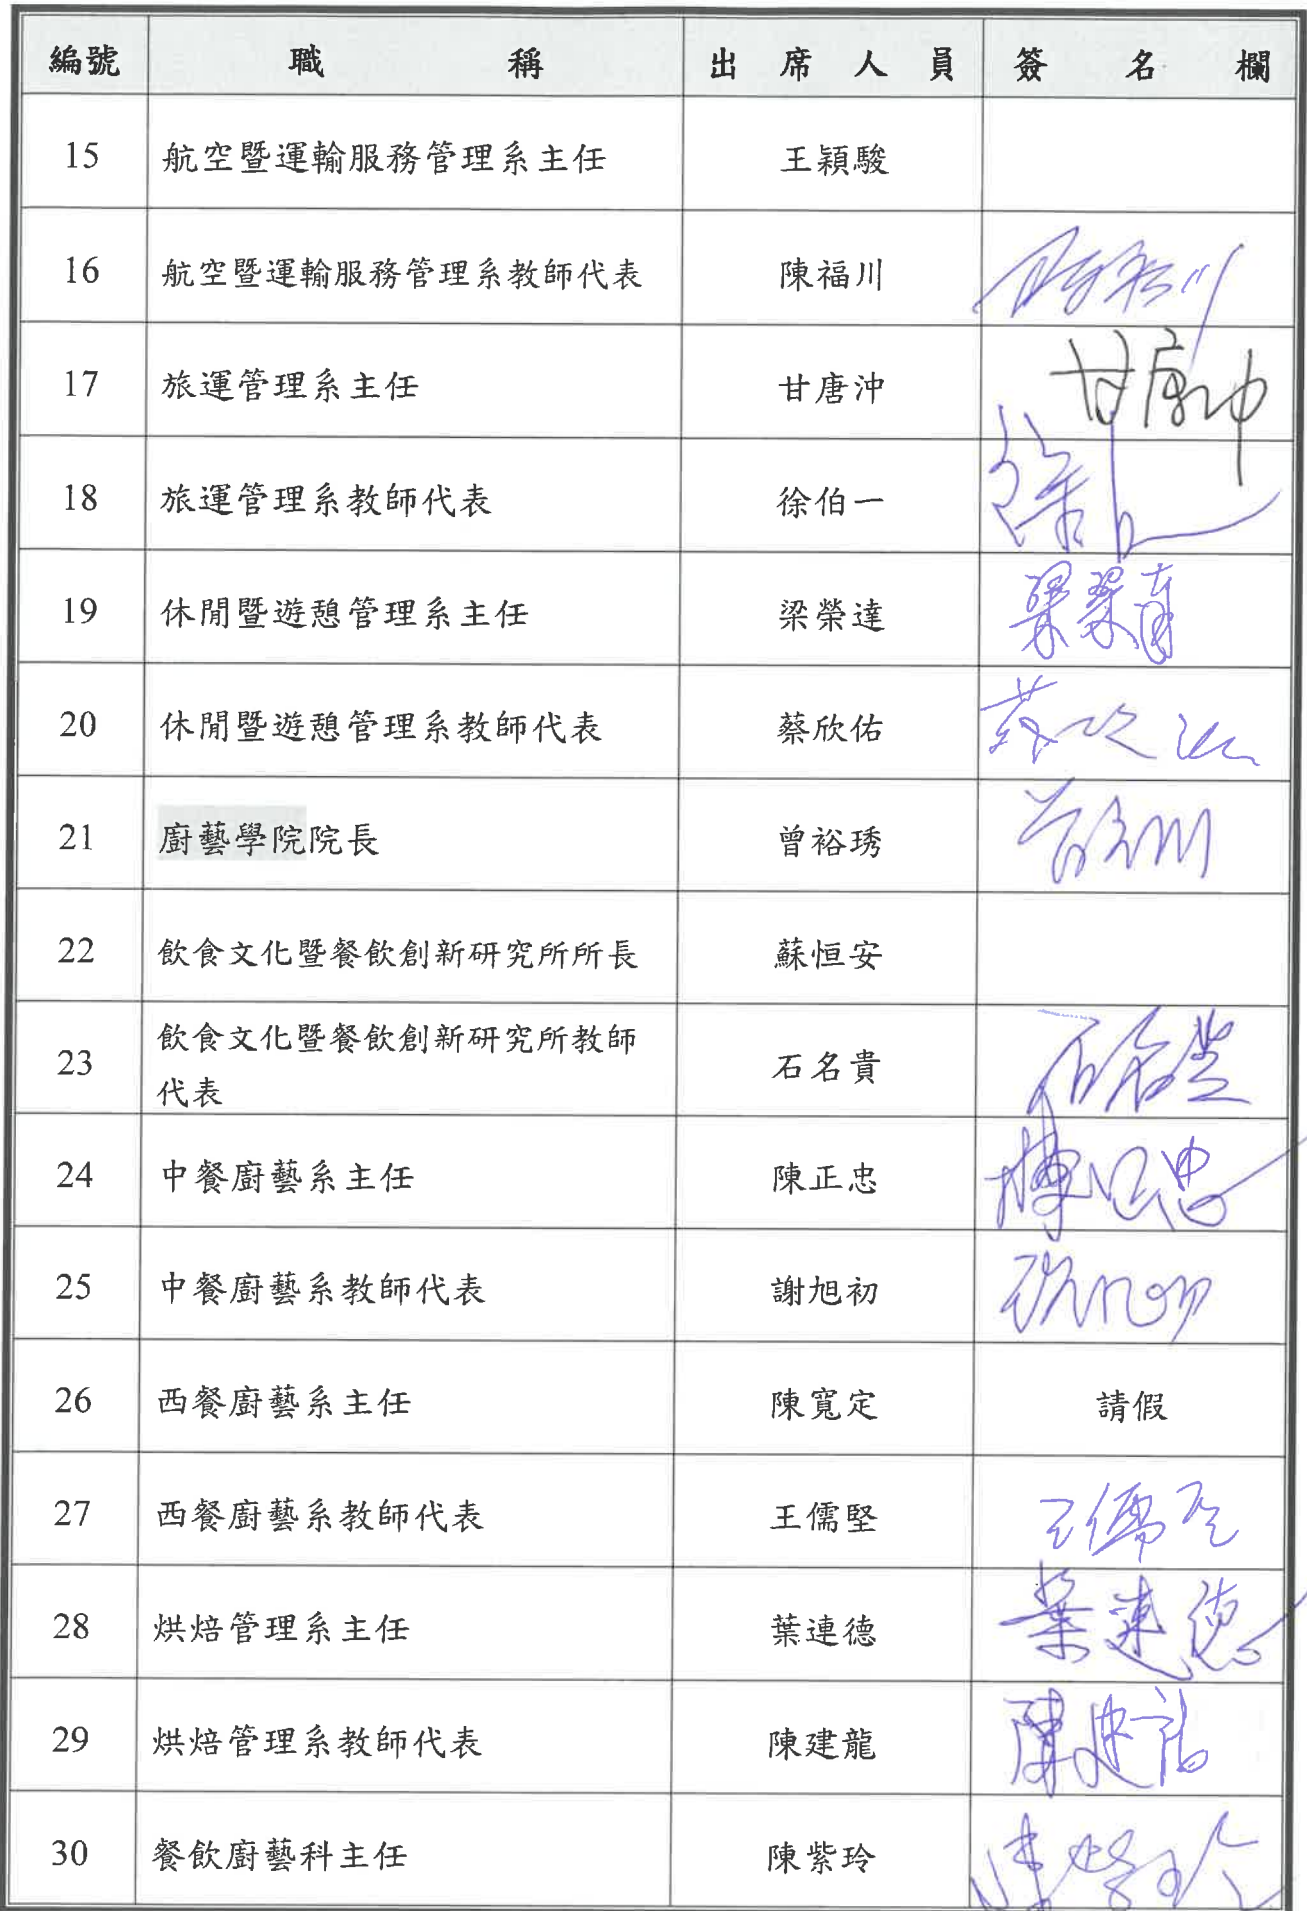 編號 職稱 出席人員 簽名欄
15 航空暨運輸服務管理系主任 王穎駿
16 航空暨運輸服務管理系教師代表 陳福川 陳福川
17 旅運管理系主任 甘唐沖 甘唐沖
18 旅運管理系教師代表 徐伯一 徐伯一
19 休閒暨遊憩管理系主任 梁榮達 梁榮達
20 休閒暨遊憩管理系教師代表 蔡欣佑
21 廚藝學院院長 曾裕琇
22 飲食文化暨餐飲創新研究所所長 蘇恒安
23 飲食文化暨餐飲創新研究所教師
代表 石名貴 石名貴
24 中餐廚藝系主任 陳正忠 陳正忠
25 中餐廚藝系教師代表 謝旭初
26 西餐廚藝系主任 陳寬定 請假
27 西餐廚藝系教師代表 王儒堅 王儒堅
28 烘焙管理系主任 葉連德 葉連德
29 烘焙管理系教師代表 陳建龍 陳建龍
30 餐飲廚藝科主任 陳紫玲 陳紫玲